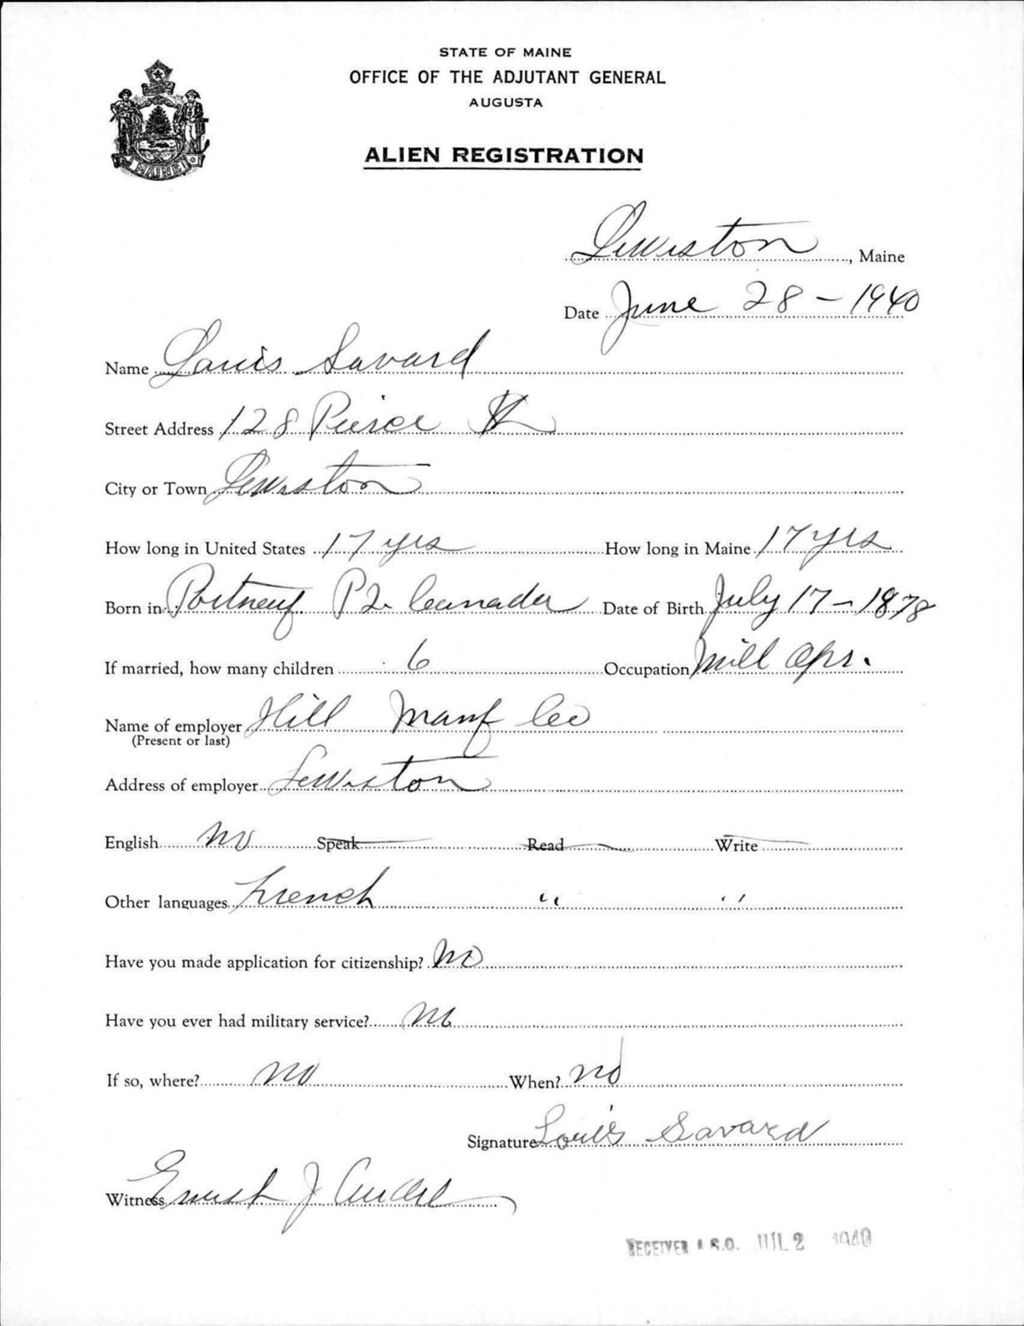 STATE OF MAINE
OFFICE OF THE ADJUTANT GENERAL
AUGUSTA
ALIEN REGISTRATION
MAINE
Lewiston, Maine
Date June 28 - 1940
Name Louis Savard
Street Address 128 Pierce St
City or Town Lewiston
How long in United States 17 yrs How long in Maine 17 yrs
Born in Portneuf P2. Canada Date of Birth July 17 - 1878
If married, how many children 6 Occupation Mill Opr.
Name of employer Hill Manf Co
(Present or last)
Address of employer Lewiston
English No Speak Read Write
Other languages French " "
Have you made application for citizenship? No
Have you ever had military service? No
If so, where? No When? No
Signature Louis Savard
Witness Ernest J
RECEIVED A.G.O. JUL 2 1940